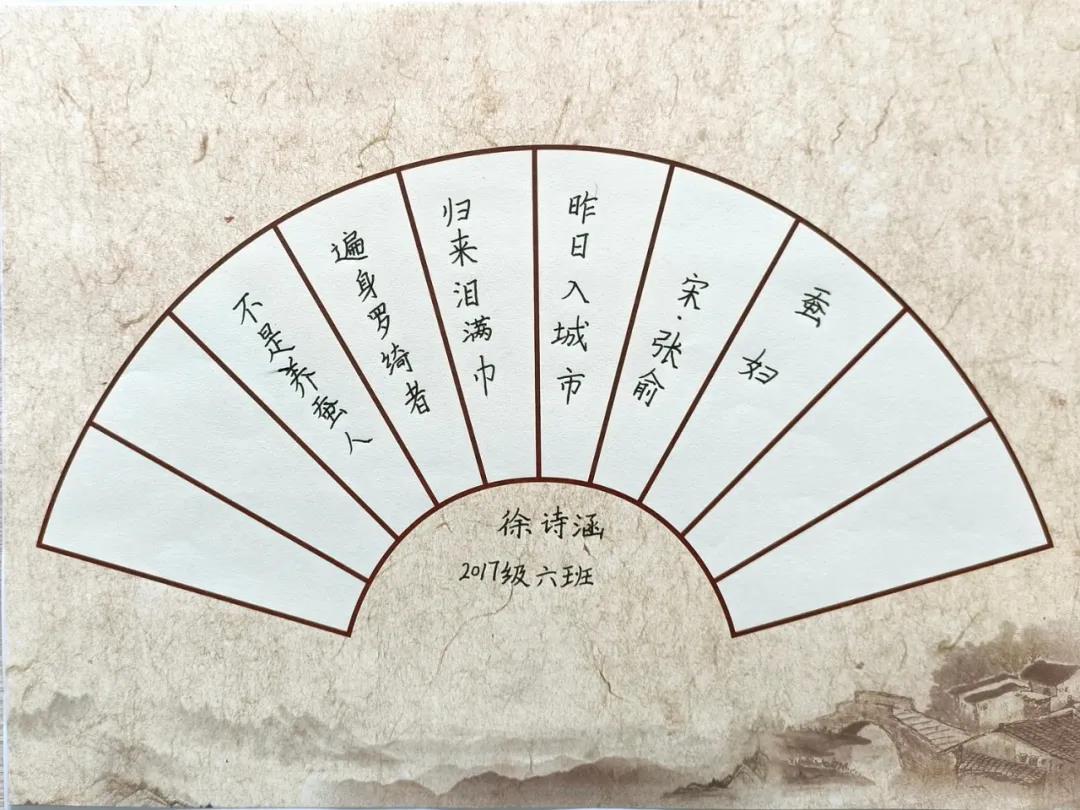 蚕妇
宋·张俞
昨日入城市
归来泪满巾
遍身罗绮者
不是养蚕人
徐诗涵
2017级六班